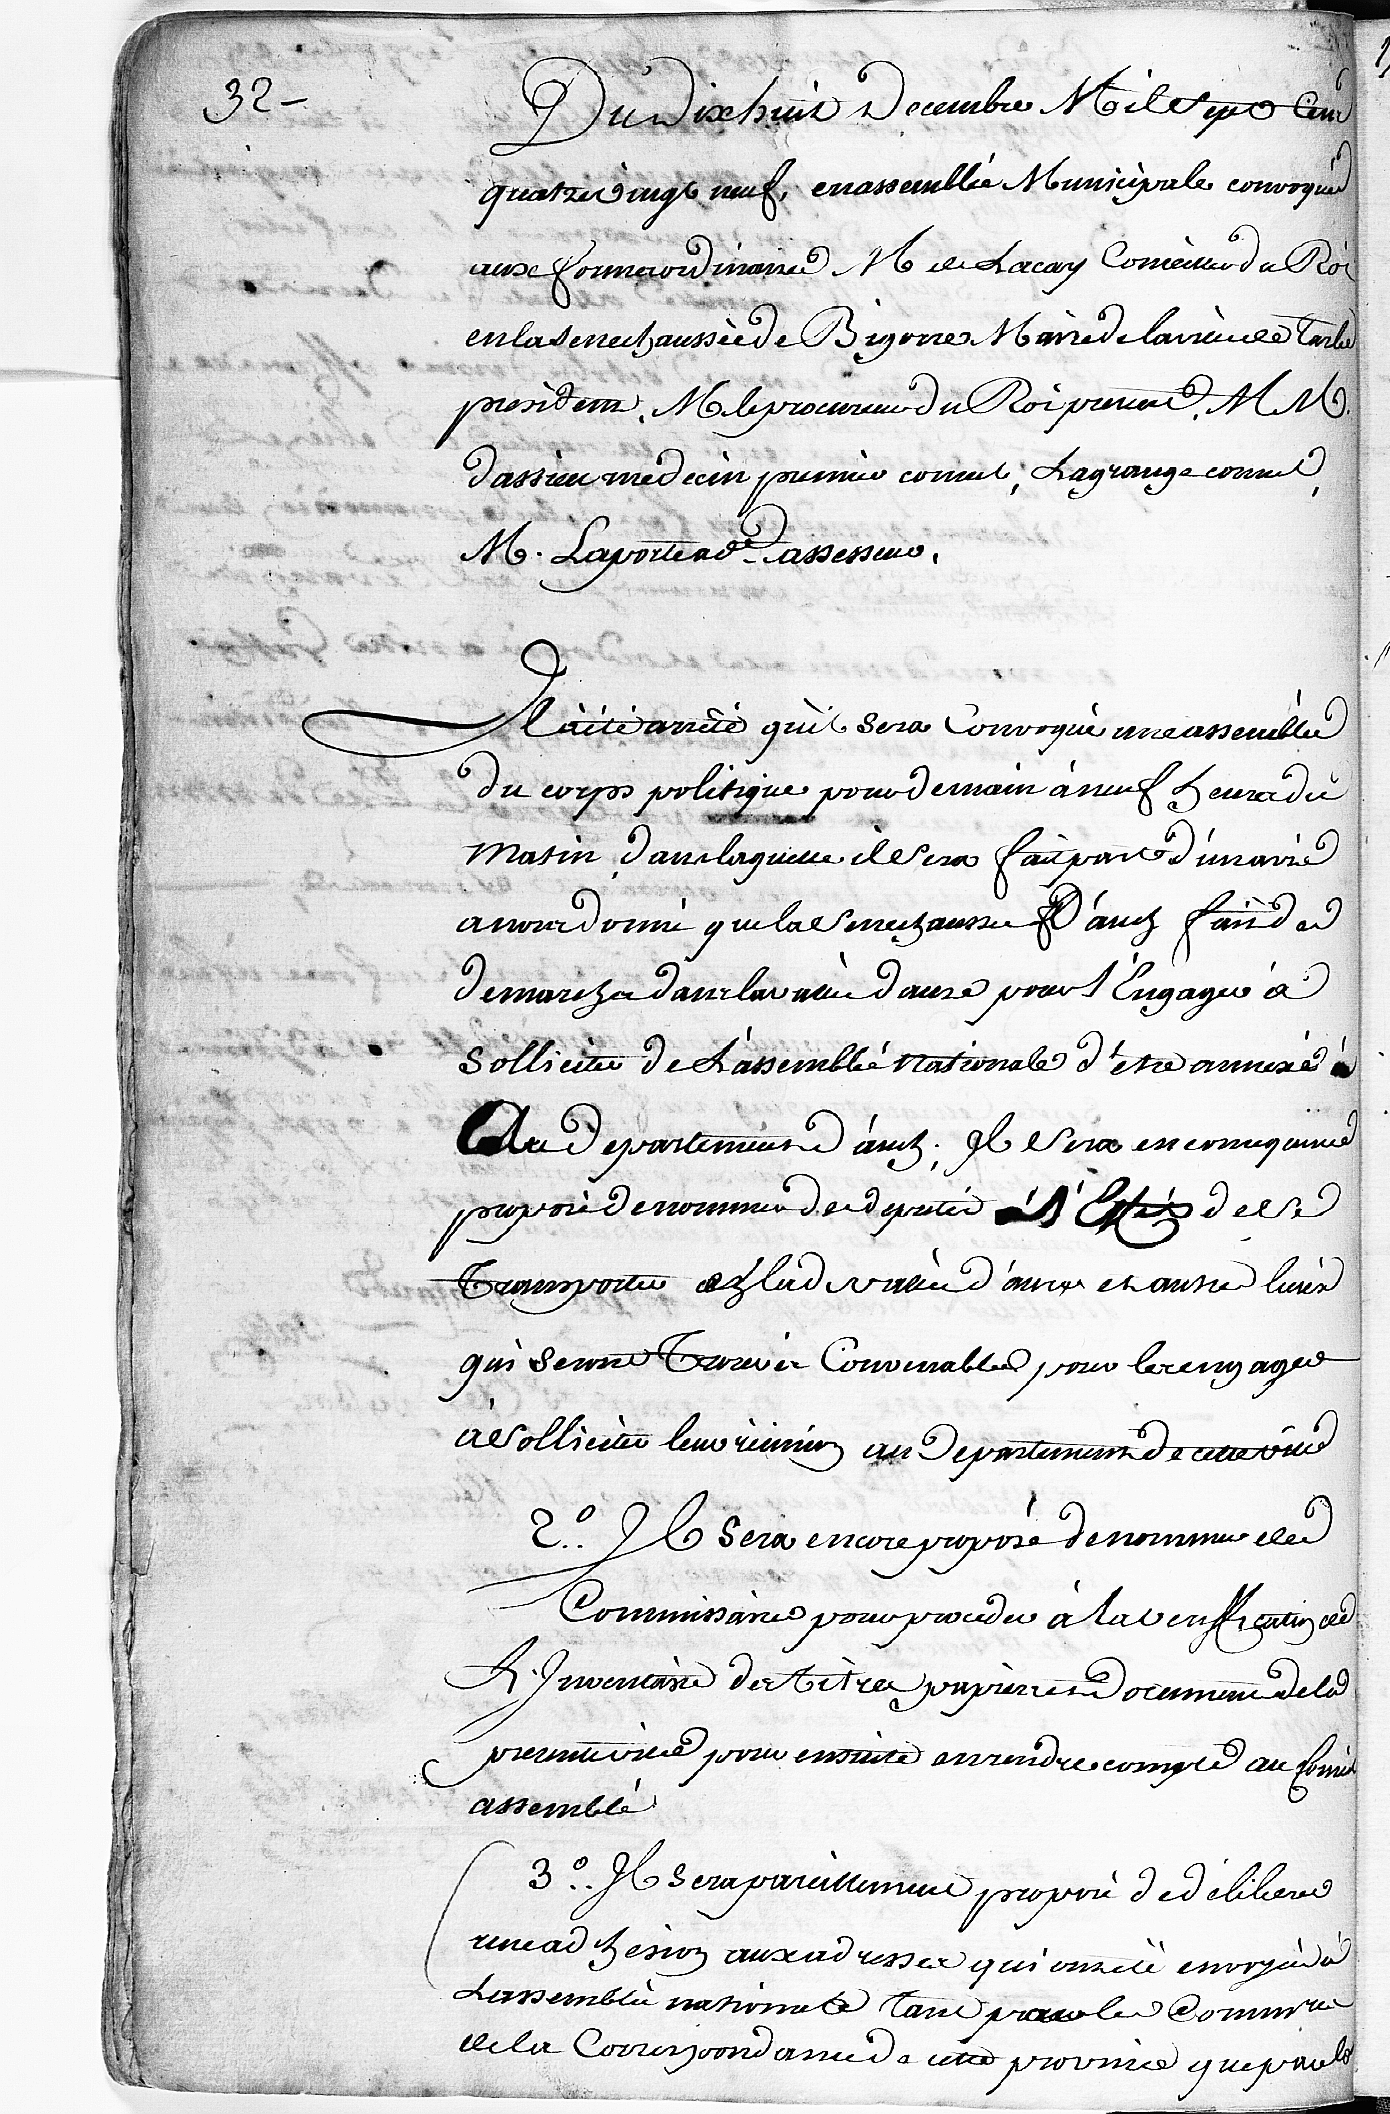 32 -
Du dix huit Decembre Mil Sept Cent
quatre vingt neuf, en assemblée Municipale convoquée
aux formes ordinaires M de Lacay Conseiller du Roi
en la Senechaussée de Bigorre Maire de la ville de Tarbe
president, M. le procureur du Roi present, M M.
dassieu medecin premier consul, Lagrange consul,
M. Laporte assesseur.
Il a été arrêté qu'il Sera Convoqué une assemblée
du corps politique pour demain à neuf heures du
Matin, dans laquelle il Sera fait part d'un avis
a nous donné que la Senechaussée D'auch fait des
demarches dans la vallée d'aure pour l'Engager à
Solliciter de L'assemblée Nationale d'etre annexée
Au Departement d'auch; Il Sera en consequence
proposé de nommer des deputés de Se
Transporter lad vallée d'aure et autres lieux
qui Seront Trouvés Convenables pour les engager
à Solliciter leur réunion au Departement de cette ville
2°.. Il Sera encore proposé de nommer des
Commissaires pour proceder à la verification de
L'Inventaire des titres papiers et Documens de la
presente ville pour ensuite en rendre compte au Conseil
assemblé
3°.. Il Sera pareillement proposé de déliberer
une adhesion aux adresses qui ont été envoyées à
L'assemblée nationale Tant par les Commres
de la Correspondance de cette province que par la